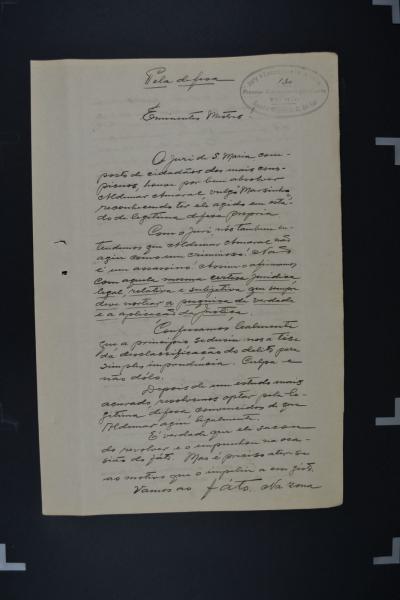 Pela defesa
130
Eminentes Mestres!
O Juri de S. Maria com-
posto de cidadãos dos mais cons-
picuos, houve por bem absolver
Aldemar Amaral vulgo Marsinho,
reconhecendo ter êle agido em esta-
do de legitima defesa propria
Com o Juri, nós tambem en-
tendemos que Aldemar Amaral não
agiu como um criminoso. Não
é um assassino. Assim o afirmamos
com aquela mesma certeza juridica
legal, relativa e subjetiva que sempre
deve nortear a pesquisa da verdade
e a aplicação da justiça.
Confessamos lealmente
que a principio seduziu-nos a tése
da desclassificação do delito para
simples imprudência. Culpa e
não dólo.
Depois de um estudo mais
acurado, resolvemos optar pela le-
gitima defesa, convencidos de que
Aldemar agiu legalmente.
É verdade que ele sacou
do revolver e o empunhou na oca-
sião do fáto. Mas é preciso ater-se
ao motivo que o impeliu a
Vamos ao fáto. Na zona